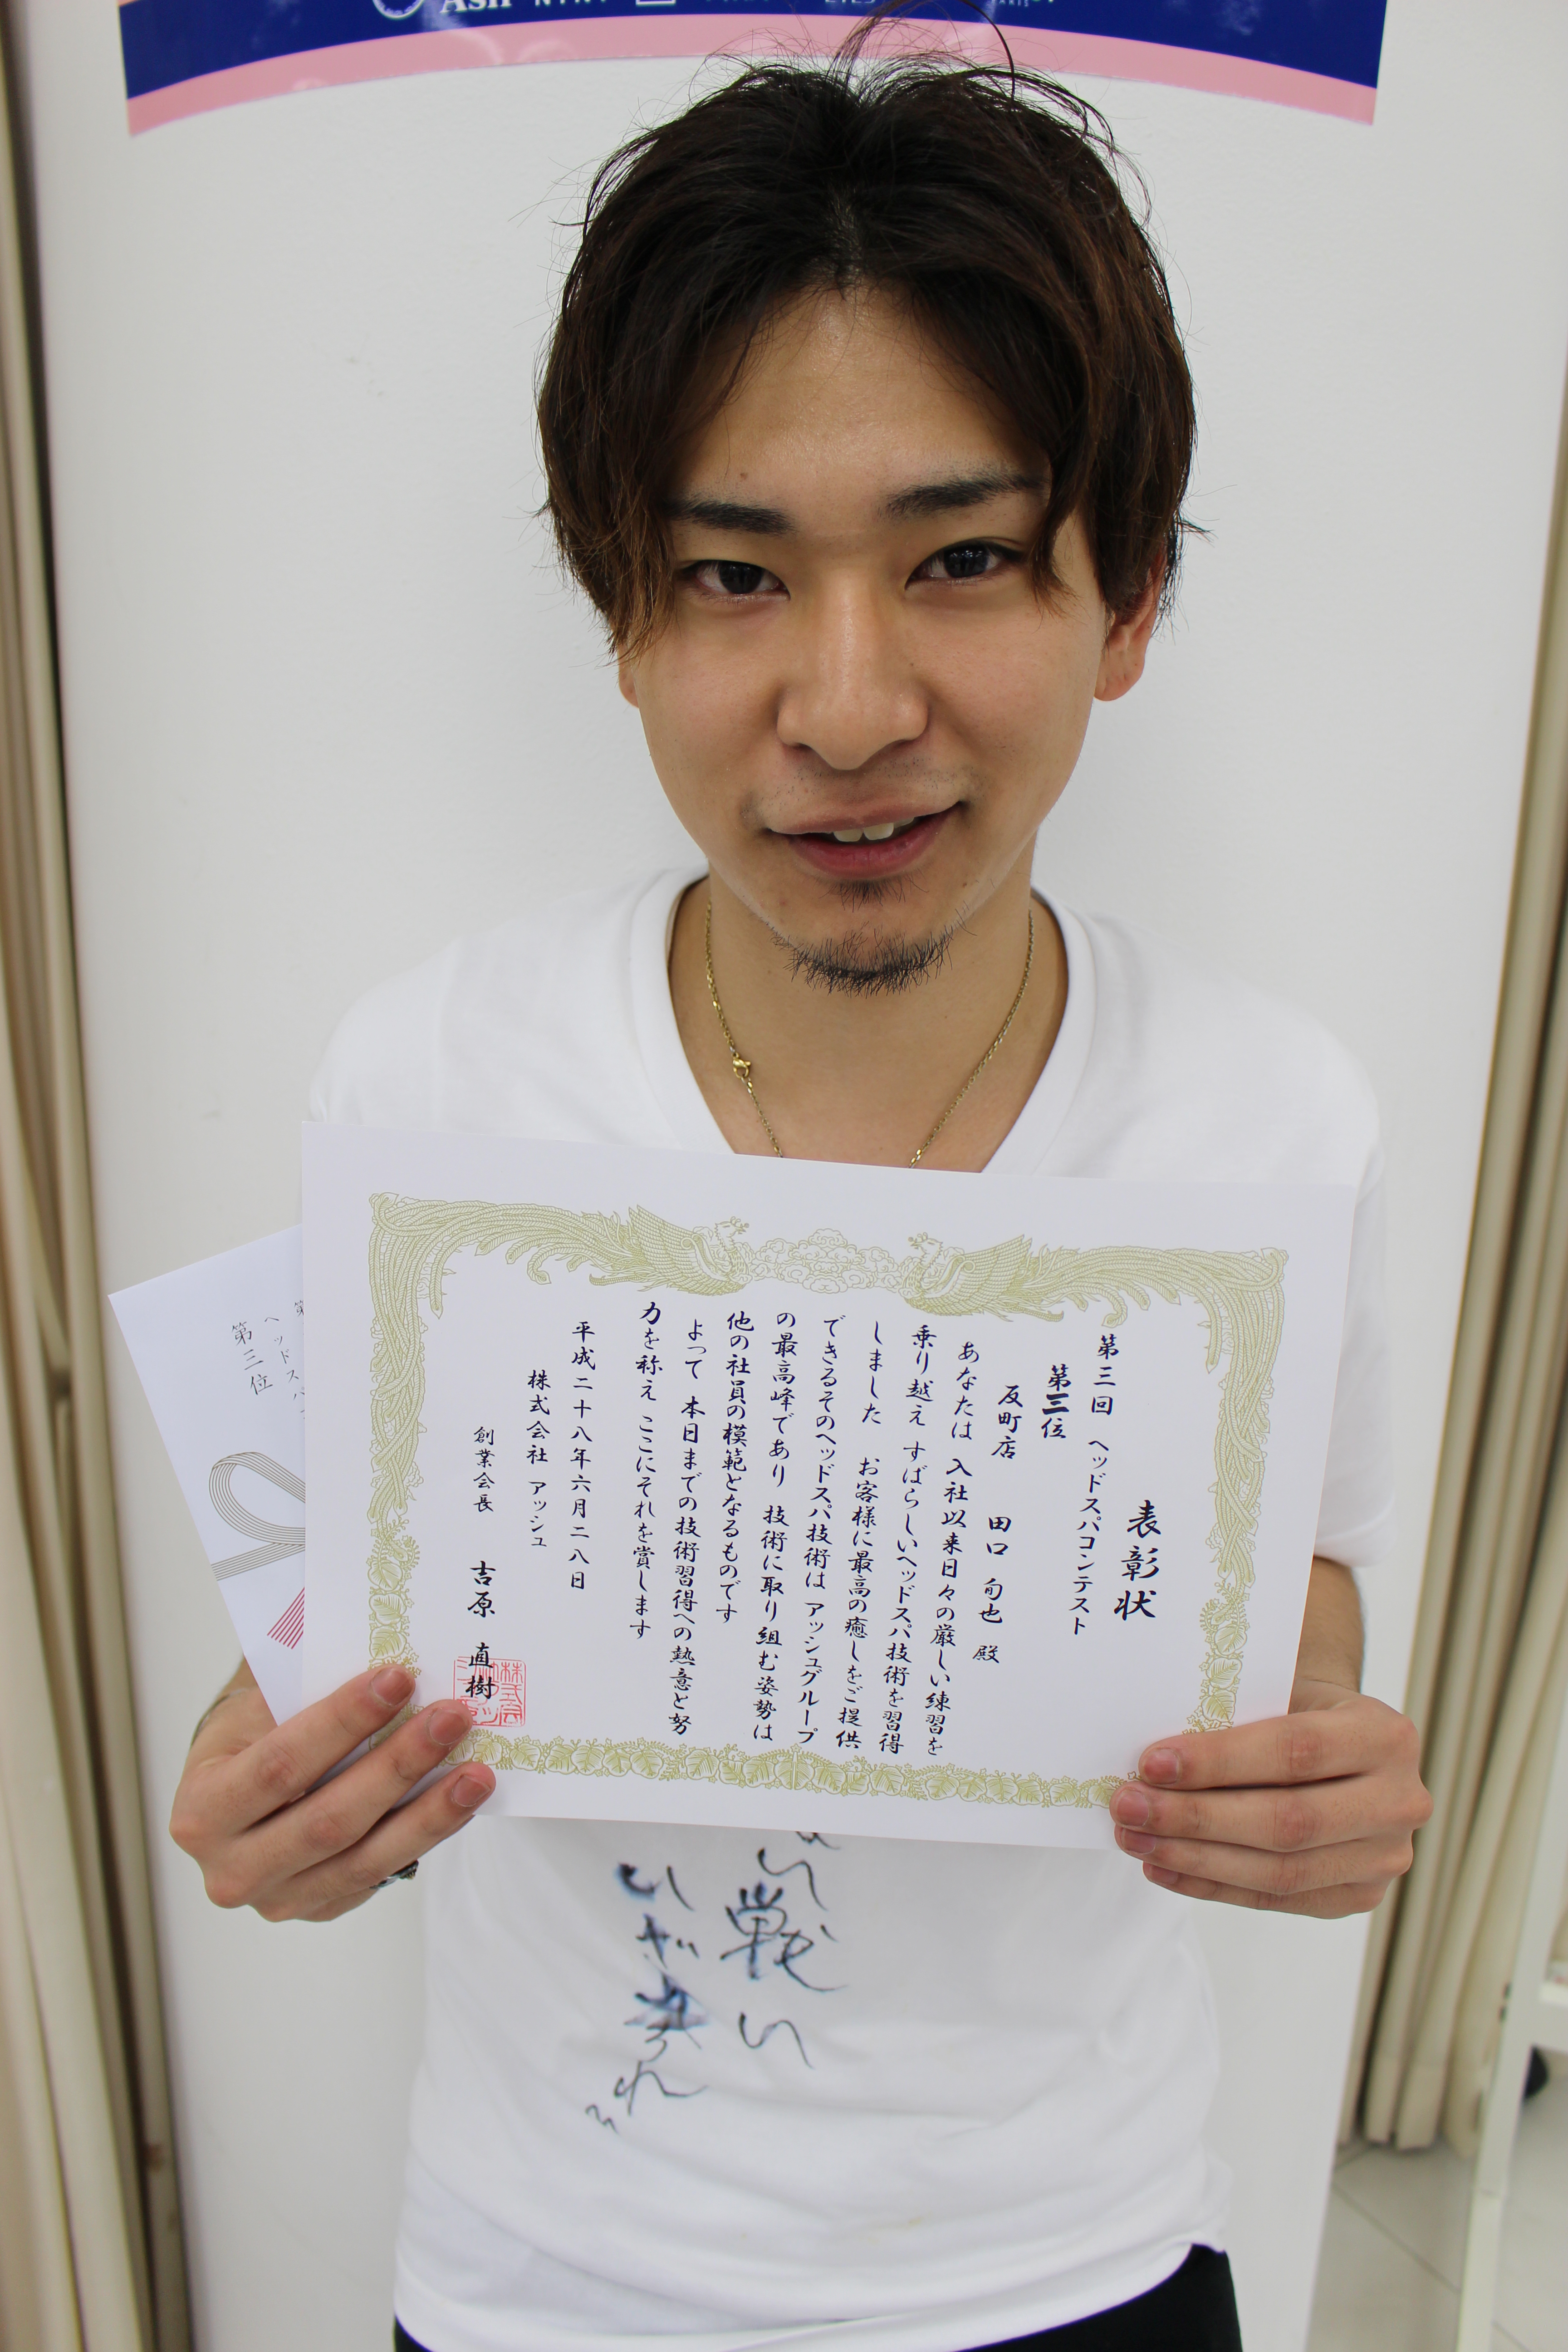 Ash
表彰状
第三回 ヘッドスパコンテスト
第三位
反町店 田口 旬也 殿
あなたは 入社以来日々の厳しい練習を
乗り越え すばらしいヘッドスパ技術を習得
しました お客様に最高の癒しをご提供
できるそのヘッドスパ技術は アッシュグループ
の最高峰であり 技術に取り組む姿勢は
他の社員の模範となるものです
よって 本日までの技術習得への熱意と努
力を称え ここにそれを賞します
平成二十八年六月二八日
株式会社 アッシュ
創業会長 吉原 直樹
ヘッドスパ
第三位
戦い